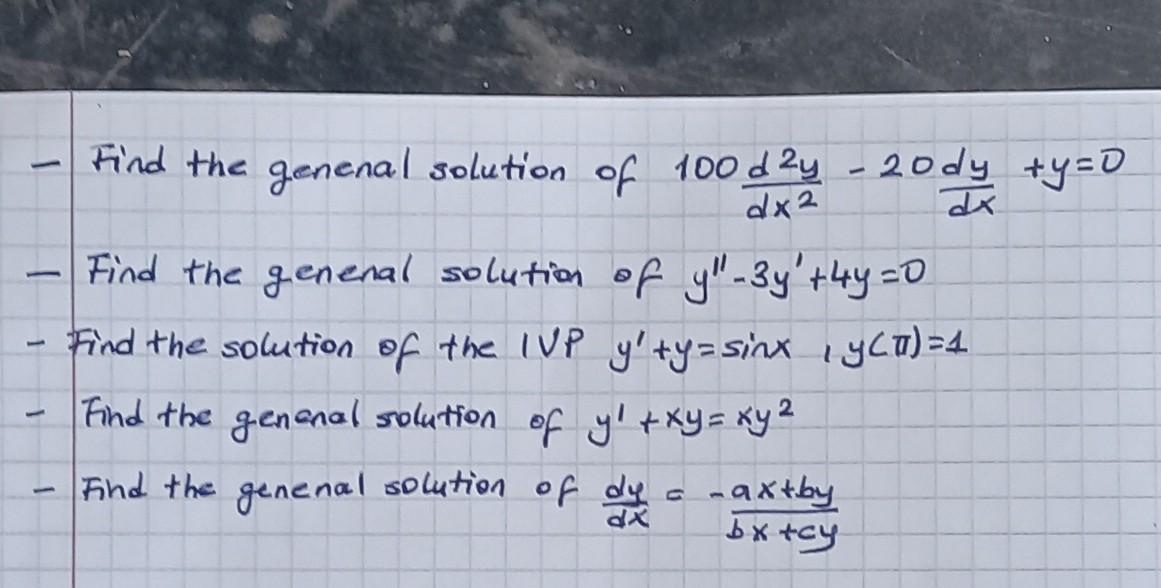 - Find the genenal solution of 100 d²y/dx² - 20 dy/dx + y = 0
- Find the genenal solution of y'' - 3y' + 4y = 0
- Find the solution of the IVP y' + y = sinx , y(π) = 1
- Find the genenal solution of y' + xy = xy²
- Find the genenal solution of dy/dx = - ax+by/bx+cy